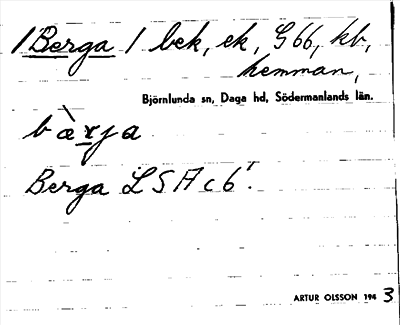 /Berga/ bek, ek, G66, kb,
hemman,
Björnlunda sn, Daga hd, Södermanlands län.
bæ̀rja
Berga LSA c6'.
ARTUR OLSSON 1943